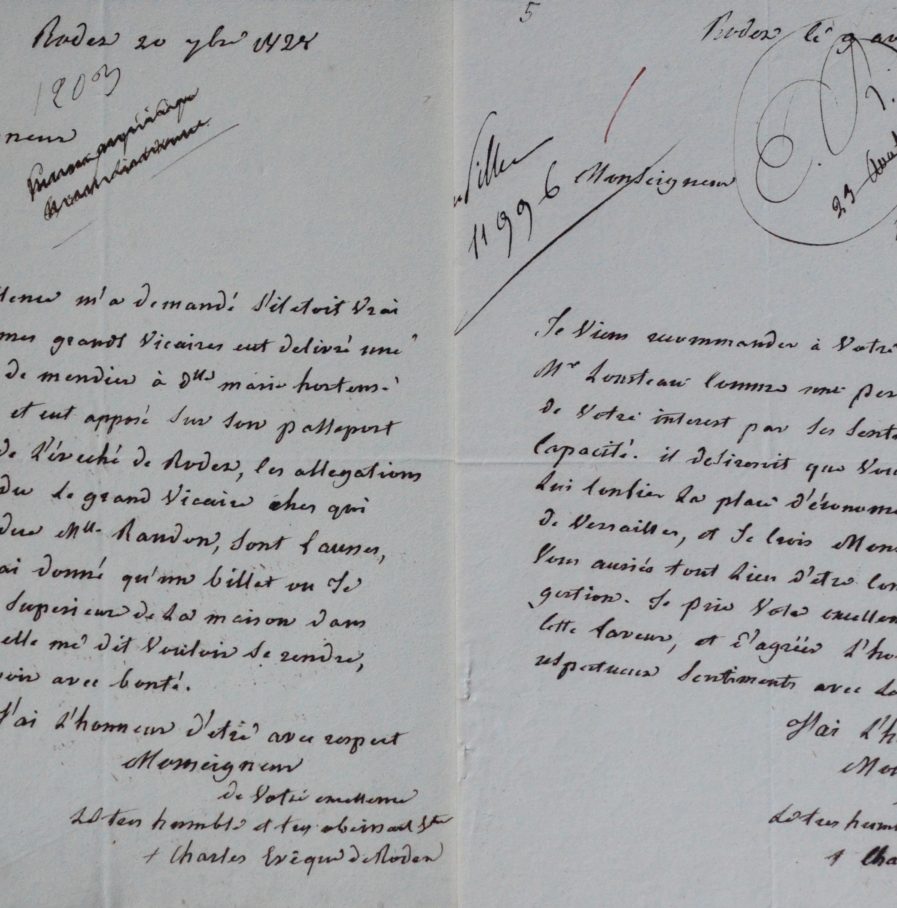 Rodez 20 9bre 1828
1203
neur
lence m'a demandé s'il etoit vrai
mes grands Vicaires eut delivré une
de mendier à dlle marie hortense
et eut apposé sur son passeport
de L'évêché de Rodez, les allegations
du Le grand Vicaire ches qui
due Mlle Randon, sont fausses,
ai donné qu'un billet ou Je
Superieur de La maison dans
elle me dit Vouloir Se rendre,
voir avec bonté.
J'ai L'honneur d'etre avec respect
Monseigneur
de Votre excellence
Le tres humble et tres obeissant Str
+ Charles Evêque de Rodez
5
Rodez le 9 av
11996
Monseigneur
29
Je Viens recommander à Votre
Mr Lousteau comme une per
de Votre interest par ses sent
capacité. il desireroit que Vou
lui confier La place d'économe
de Versailles, et Je crois Mon
Vous auriés tout Lieu d'être con
gestion. Je prie Votre excellen
cette faveur, et d'agréer L'ho
respectueux Sentiments avec Le
J'ai L'h
Mo
Le tres hum
+ Cha